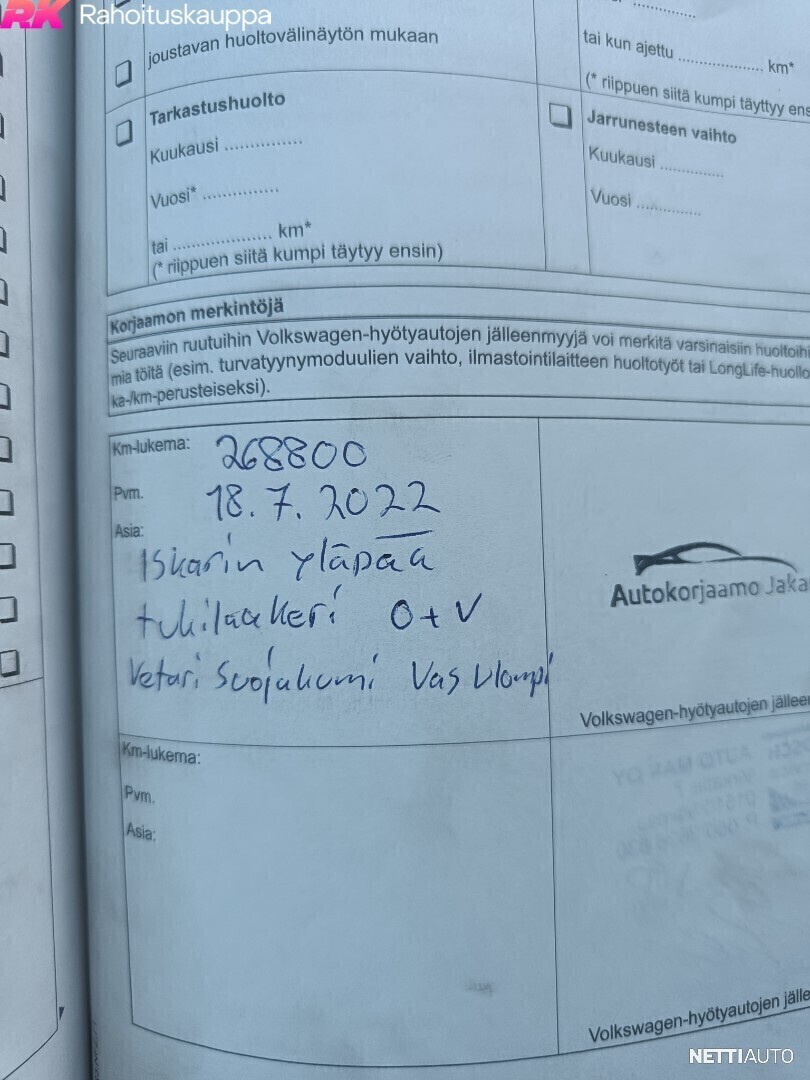 RK Rahoituskauppa
joustavan huoltovälinäytön mukaan
tai kun ajettu ................... km*
(* riippuen siitä kumpi täyttyy ens
Tarkastushuolto
Kuukausi ................
Vuosi* ................
tai .................... km*
(* riippuen siitä kumpi täytyy ensin)
Jarrunesteen vaihto
Kuukausi .............
Vuosi .............
Korjaamon merkintöjä
Seuraaviin ruutuihin Volkswagen-hyötyautojen jälleenmyyjä voi merkitä varsinaisiin huoltoihi
mia töitä (esim. turvatyynymoduulien vaihto, ilmastointilaitteen huoltotyöt tai LongLife-huollo
ka-/km-perusteiseksi).
Km-lukema: 268800
Pvm. 18.7.2022
Asia:
Iskarin yläpää
tukilaakeri O+V
Vetari suojakumi Vas Ulompi
Autokorjaamo Jaka
Volkswagen-hyötyautojen jälleen
Km-lukema:
Pvm.
Asia:
Volkswagen-hyötyautojen jälle
NETTIAUTO